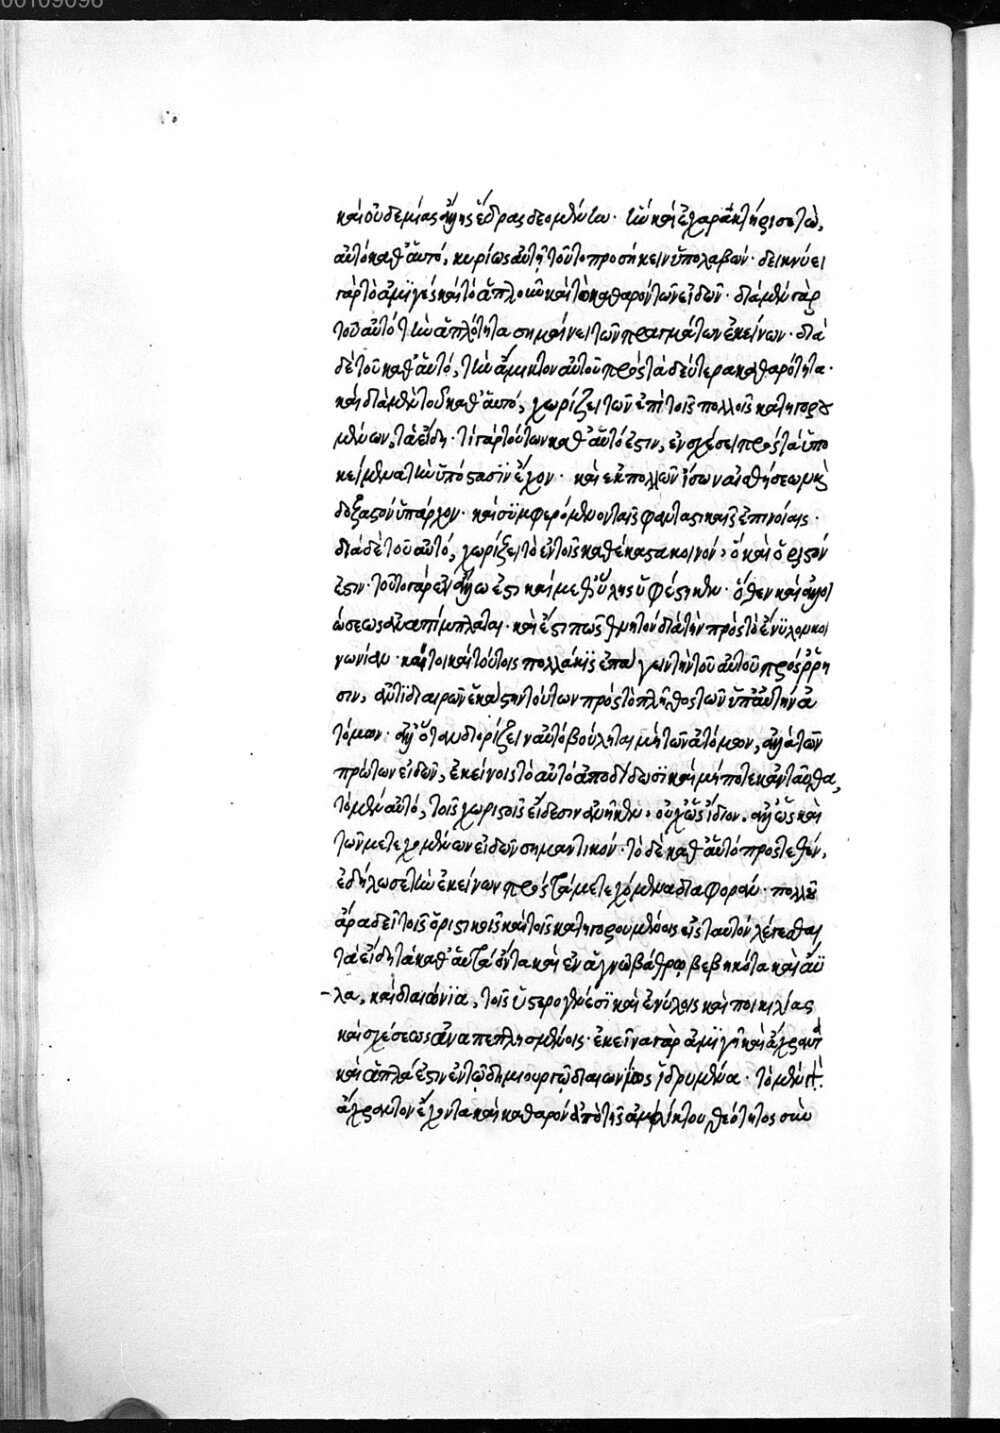 00109098
καὶ οὐδεμίας ἄλλης ἕδρας δεομένην· ἣν καὶ ἐχαρακτήρισε τῷ,
αὐτὸ καθ' αὑτό, κυρίως αὐτῇ τοῦτο προσήκειν ὑπολαβών· δεικνύει
γὰρ τὸ ἀμιγές καὶ τὸ ἁπλοῦν καὶ τὸ καθαρὸν τῶν εἰδῶν· διὰ μὲν γὰρ
τοῦ αὐτό τὴν ἁπλότητα σημαίνει τῶν πραγμάτων ἐκείνων· διὰ
δὲ τοῦ καθ' αὑτό, τὴν ἄμικτον αὐτοῦ πρὸς τὰ δεύτερα καθαρότητα·
καὶ διὰ μὲν τοῦ καθ' αὑτό, χωρίζει τῶν ἐπὶ τοῖς πολλοῖς κατηγορου
μένων, τὰ εἴδη· τί γὰρ τούτων καθ' αὑτό ἐστιν, ἐν σχέσει πρὸς τὰ ὑπο
κείμενα τὴν ὑπόστασιν ἔχον· καὶ ἐκ πολλῶν ἰσων αἰσθήσεων καὶ
δοξαστὸν ὑπάρχον· καὶ συμφερόμενον ταῖς φανταστικαῖς ἐπινοίαις·
διὰ δὲ τοῦ αὐτό, χωρίζει τὸ ἐν τοῖς καθέκαστα κοινόν, ὃ καὶ ὁριστόν
ἐστιν· τοῦτο γὰρ ἐν ἄλλῳ ἐστὶ καὶ μεθ' ὕλης ὑφέστηκεν· ὅθεν καὶ ἀλλοι
ώσεως ἀναπίμπλαται· καὶ ἔστι πως θνητὸν διὰ τὴν πρὸς τὸ ἔνυλον κοι
νωνίαν· καίτοι καὶ τούτοις πολλάκις ἐπάγειν τὴν τοῦ αὐτοῦ πρόσρη
σιν, ἀντιδιαιρῶν ἑκάστην τούτων πρὸς τὸ πλῆθος τῶν ὑπ' αὐτὴν ἀ
τόμων· ἀλλ' ὅταν διορίζειν αὐτὸ βούληται μὴ τῶν ἀτόμων, ἀλλὰ τῶν
πρώτων εἰδῶν, ἐκείνοις τὸ αὐτὸ ἀποδίδωσι καὶ μή ποτε κἀνταῦθα,
τὸ μὲν αὐτό, τοῖς χωριστοῖς εἴδεσιν ἀνῆκεν, οὐχ ὡς ἴδιον, ἀλλ' ὡς καὶ
τῶν μετεχομένων εἰδῶν σημαντικόν· τὸ δὲ καθ' αὑτό προστεθέν,
ἐδήλωσε τὴν ἐκείνων πρὸς τὰ μετεχόμενα διαφοράν· πολλοῦ
ἄρα δεῖ τοῖς ὁριστικοῖς καὶ τοῖς κατηγορουμένοις εἰς ταυτὸν λέγεσθαι
τὰ εἴδη τὰ καθ' αὑτά ὄντα καὶ ἐν ἁγνῷ βάθρῳ βεβηκότα καὶ ἄϋ
-λα, καὶ διαιώνια, τοῖς ὑστερογενέσι καὶ ἐνύλοις καὶ ποικιλίας
καὶ σχέσεως ἀναπεπλησμένοις· ἐκεῖνα γὰρ ἀμιγῆ καὶ ἄχραντα
καὶ ἁπλᾶ ἐστιν ἐν τῷ δημιουργῷ διαιωνίως ἱδρυμένα· τὸ μὲν
ἄχραντον ἔχοντα καὶ καθαρὸν ἀπὸ τῆς ἀμειλίκτου θεότητος σὺν